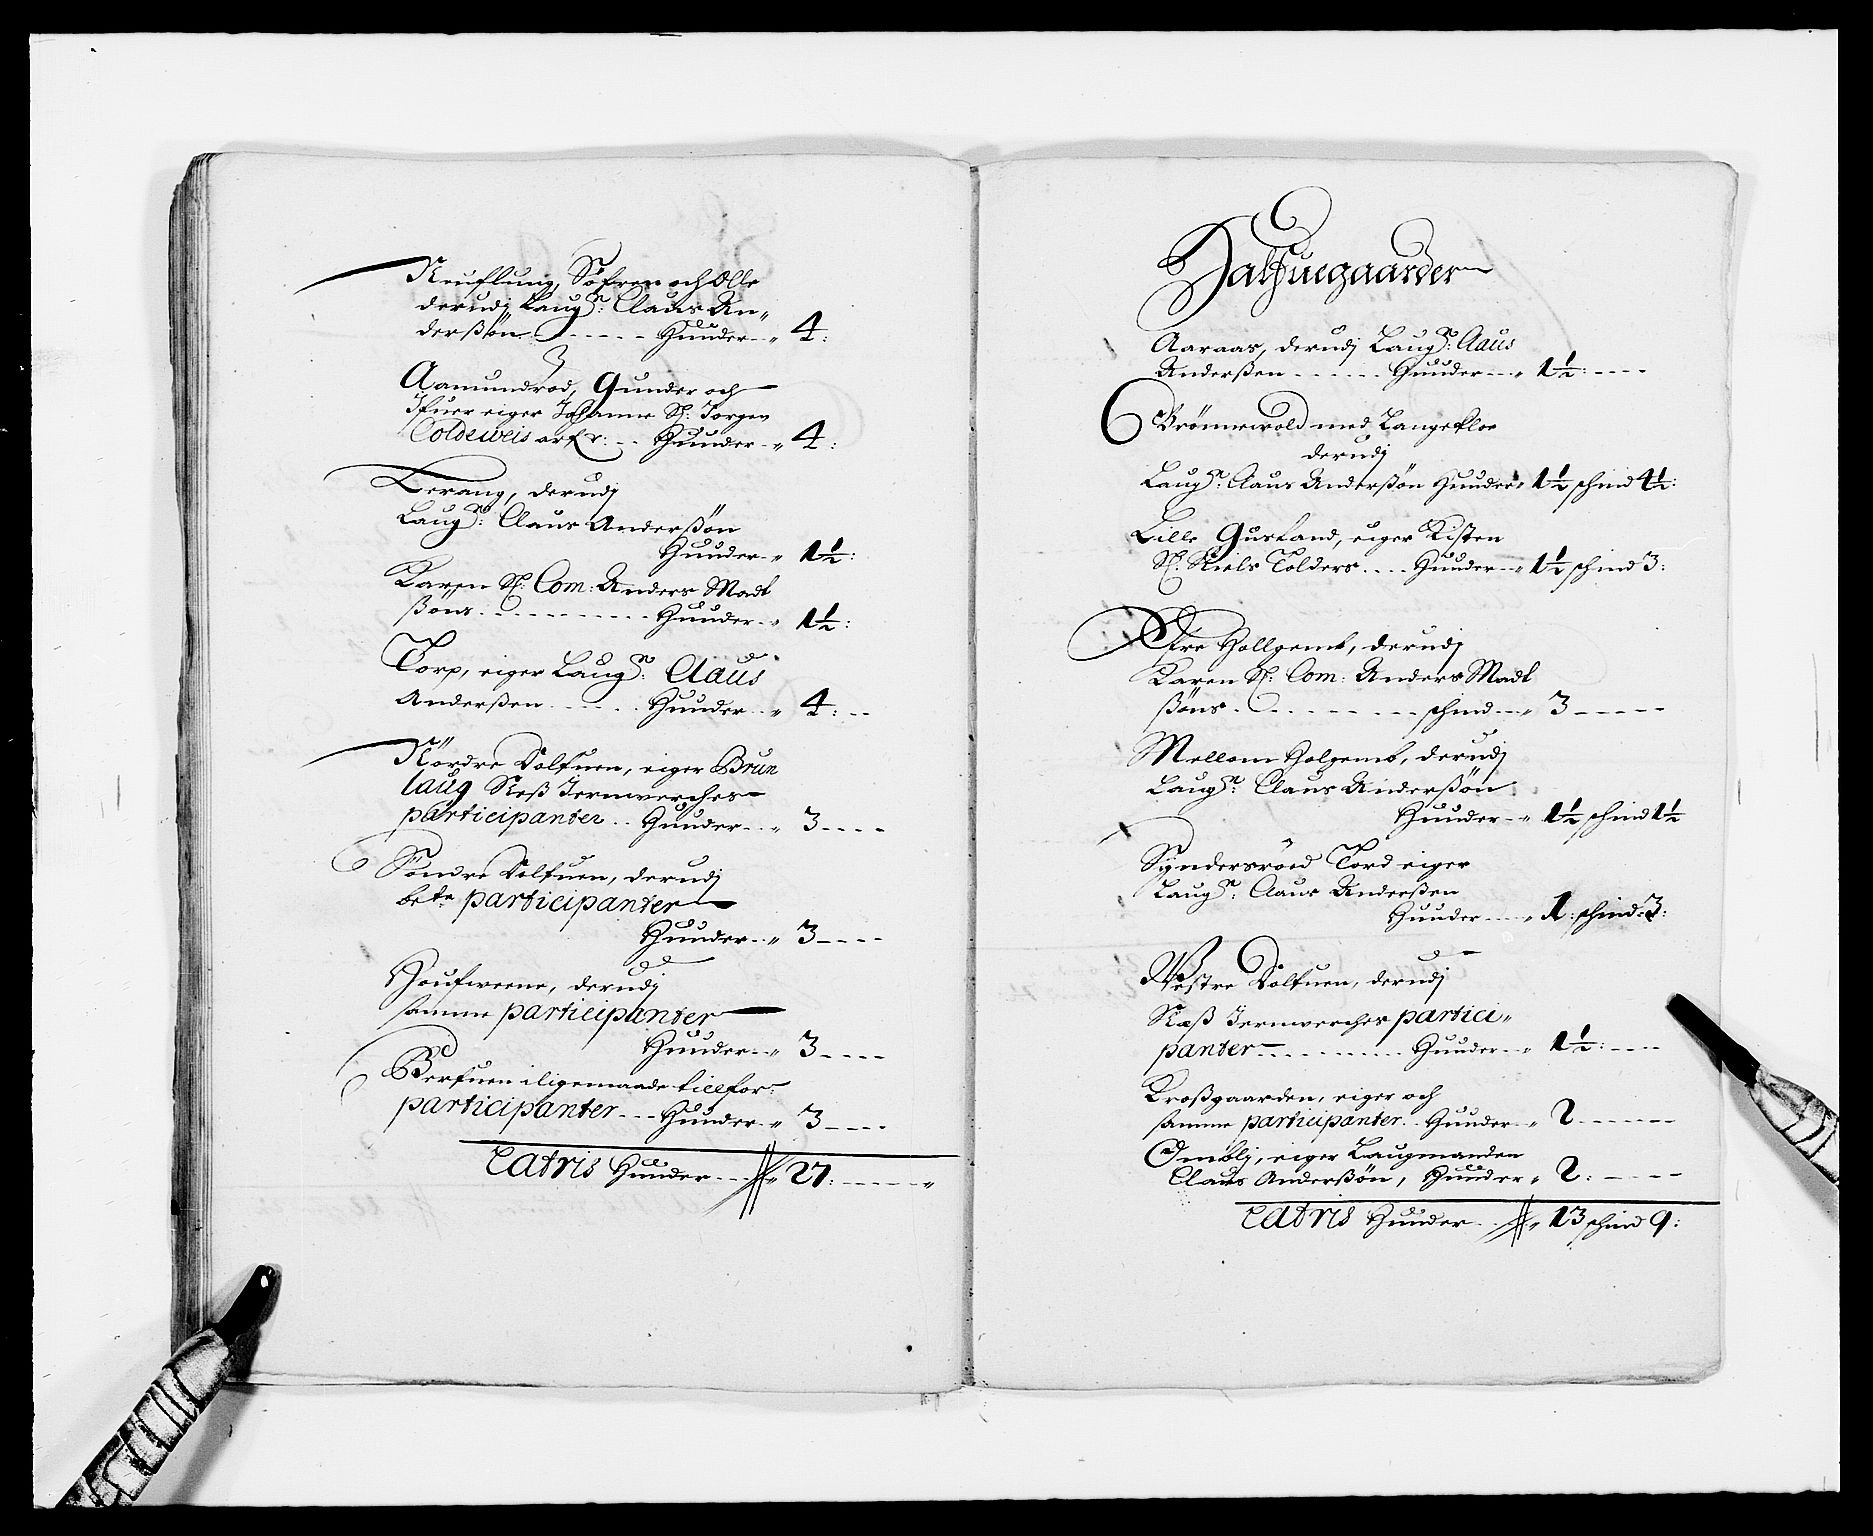 Neuflung, Söfren och Olle
derudj Laugm: Claus An„
derßön . . . . . Huuder „ 4:
Aamundrød, Gunder och
Ifuer eiger Johanne Sl: Jørgen
Coldeweis arfr: . . Huuder „ 4:
Berang, derudj
Laugm: Claus Anderßön
Huuder „ 1½:
Karen Sl: Com: Anders Madt
ßöns . . . . . . . Huuder „ 1½:
Torp, eiger Laugm: Claus
Anderßen . . . . . Huuder „ 4: --
Nördre Dolfuen, eiger Brun
laug Neß Jernwerches
participanter . . Huuder „ 3 - - - -
Söndre Dolfuen, derudj
bete participanter
Huuder „ 3 - - - -
Houfweene, derudj
samme participanter
Huuder „ 3 - - - -
Berfuen iligemaade tillfor:
participanter - - - Huuder „ 3 - - - -
Latris Huuder - - - „ 27: - - - - - „
Halfuegaarder
Aaraas, derudj Laugm: Claus
Anderßen . . . . . . Huuder „ 1½: - - - -
Brönnewold med Langekloe
derudj
Laugm: Claus Anderßön Huuder „ 1½ schind 4½:
Lille Gusland, eiger Kisten
Sl: Niels Tolders . . . . Huuder „ 1½ schind 3:
Øfre Hollgemb, derudj
Karen Sl: Com: Anders Madt
ßöns . . . . . . . . schind „ 3 - - - - -
Mellom Holgemb, derudj
Laugm: Claus Anderßön
Huuder „ 1½ schind 1½
Syndersröed Tord eiger
Laugm: Claus Anderßen
Huuder . . „ 1: schind 3:
Westre Dolfuen, derudj
Næß Jernwerches partici„
panter - . . . . . . . . Huuder „ 1½: - - - -
Kroßgaarden, eiger och
samme participanter . . Huuder „ 2 - - - - - -
Ombli, eiger Laugmanden
Claus Anderßön, Huuder „ 2: - - - -
Latris Huuder . . „ 13 schind 9: